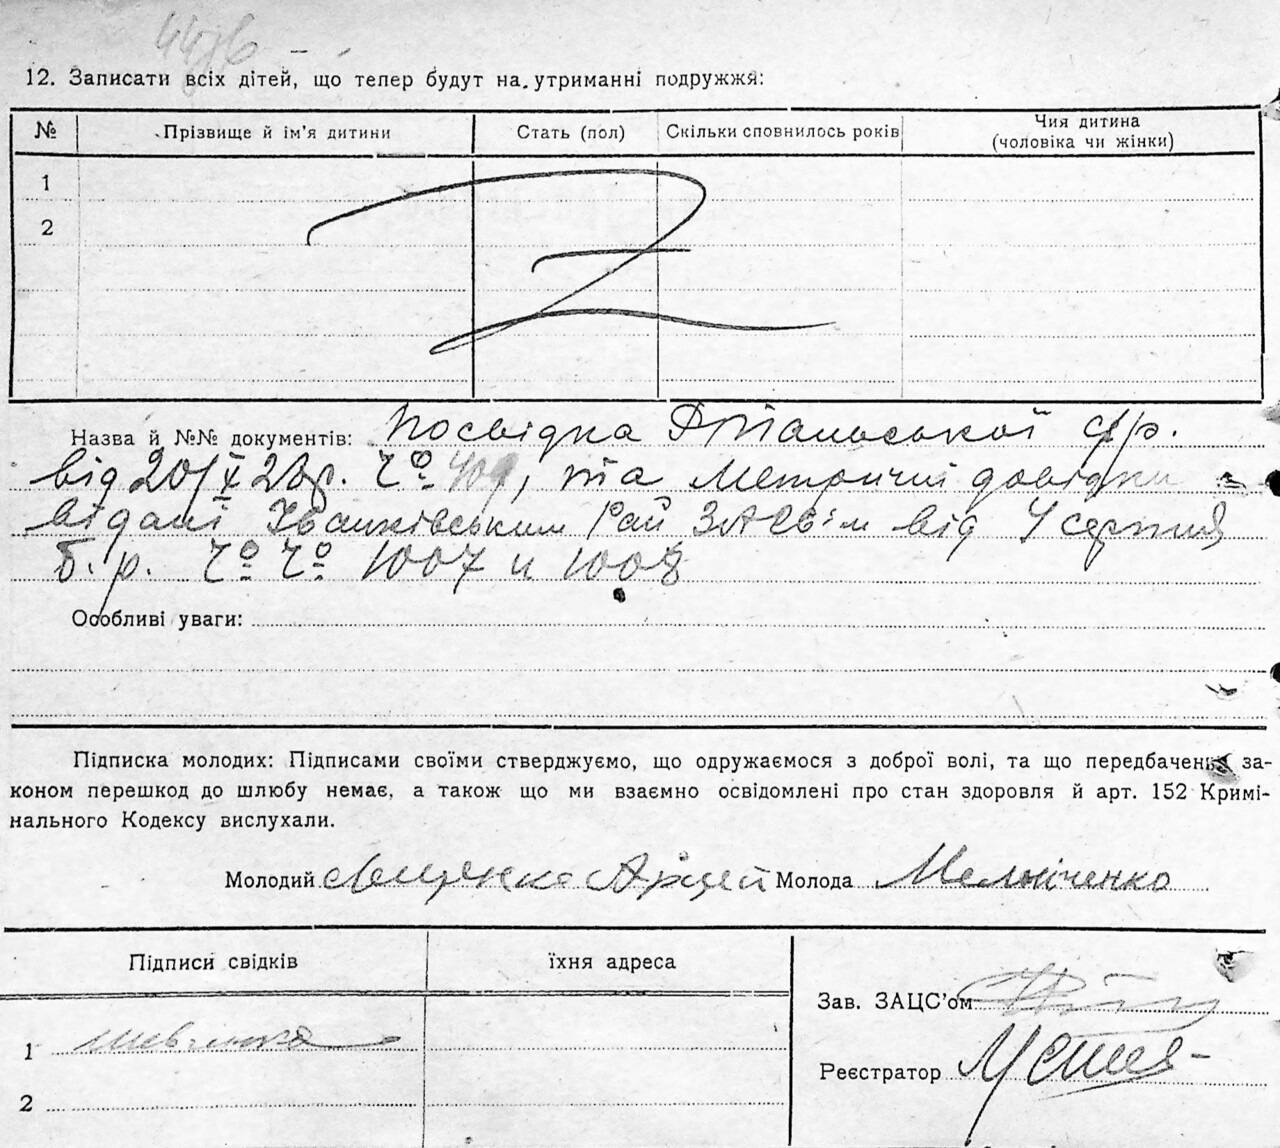 12. Записати всіх дітей, що тепер будут на утриманні подружжя:
№ Прізвище й ім'я дитини Стать (пол) Скільки сповнилось років Чия дитина (чоловіка чи жінки)
1
2
Назва й №№ документів: Посвідка с/р.
від 20/X 28р. Ч° 409, та Метричні довідки
відані Іванківським Рай ЗАСВ'м від 4 серпня
б. р. Ч° Ч° 1007 и 1008
Особливі уваги:
Підписка молодих: Підписами своїми стверджуємо, що одружаємося з доброї волі, та що передбачених за-
коном перешкод до шлюбу немає, а також що ми взаємно освідомлені про стан здоровля й арт. 152 Кримі-
нального Кодексу вислухали.
Молодий Молода Мельніченко
Підписи свідків їхня адреса
Зав. ЗАЦС'ом
1
Реєстратор
2